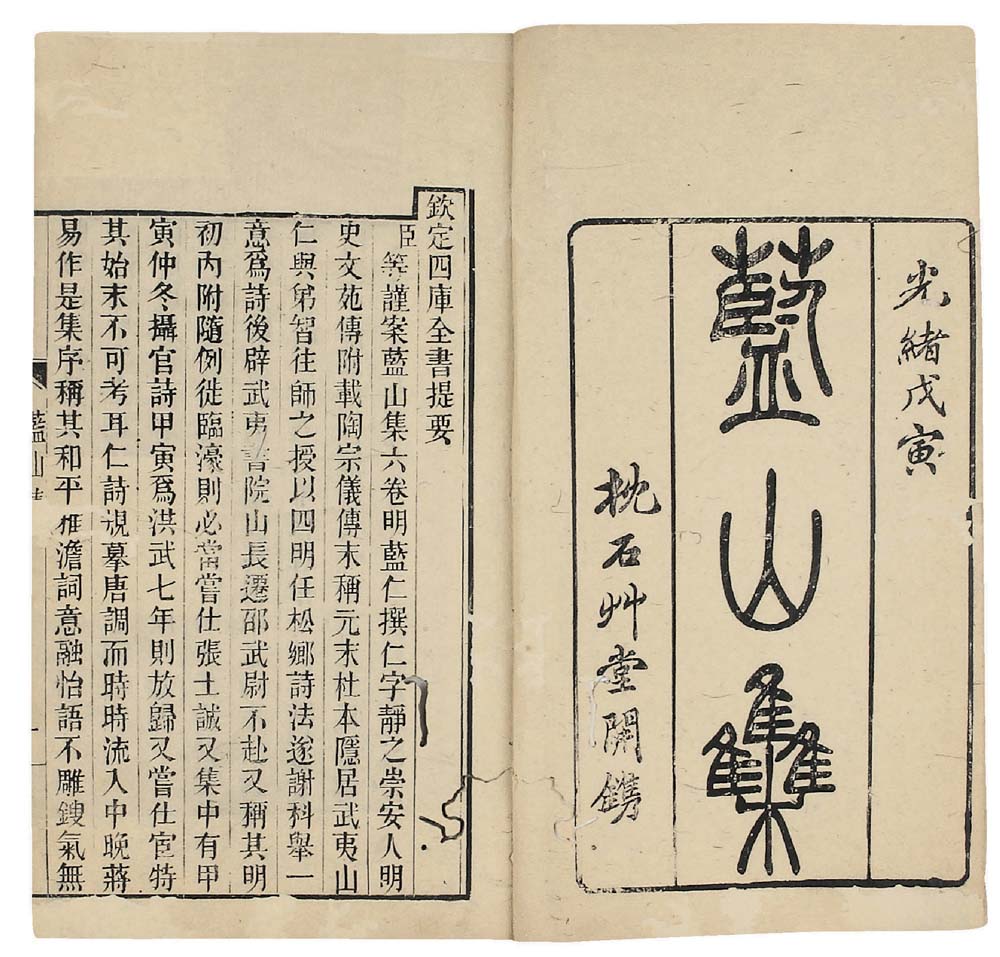 光緒戊寅
藍山集
枕石艸堂開鐫
欽定四庫全書提要
臣等謹案藍山集六卷明藍仁撰仁字靜之崇安人明
史文苑傳附載陶宗儀傳末稱元末杜本隱居武夷山
仁與弟智往師之授以四明任松鄉詩法遂謝科舉一
意爲詩後辟武夷書院山長遷邵武尉不赴又稱其明
初內附隨例徙臨濠則必當嘗仕張士誠又集中有甲
寅仲冬攝官詩甲寅爲洪武七年則放歸又嘗仕宦特
其始末不可考耳仁詩規摹唐調而時時流入中晚蔣
易作是集序稱其和平雅澹詞意融怡語不雕鎪氣無
藍山集
一